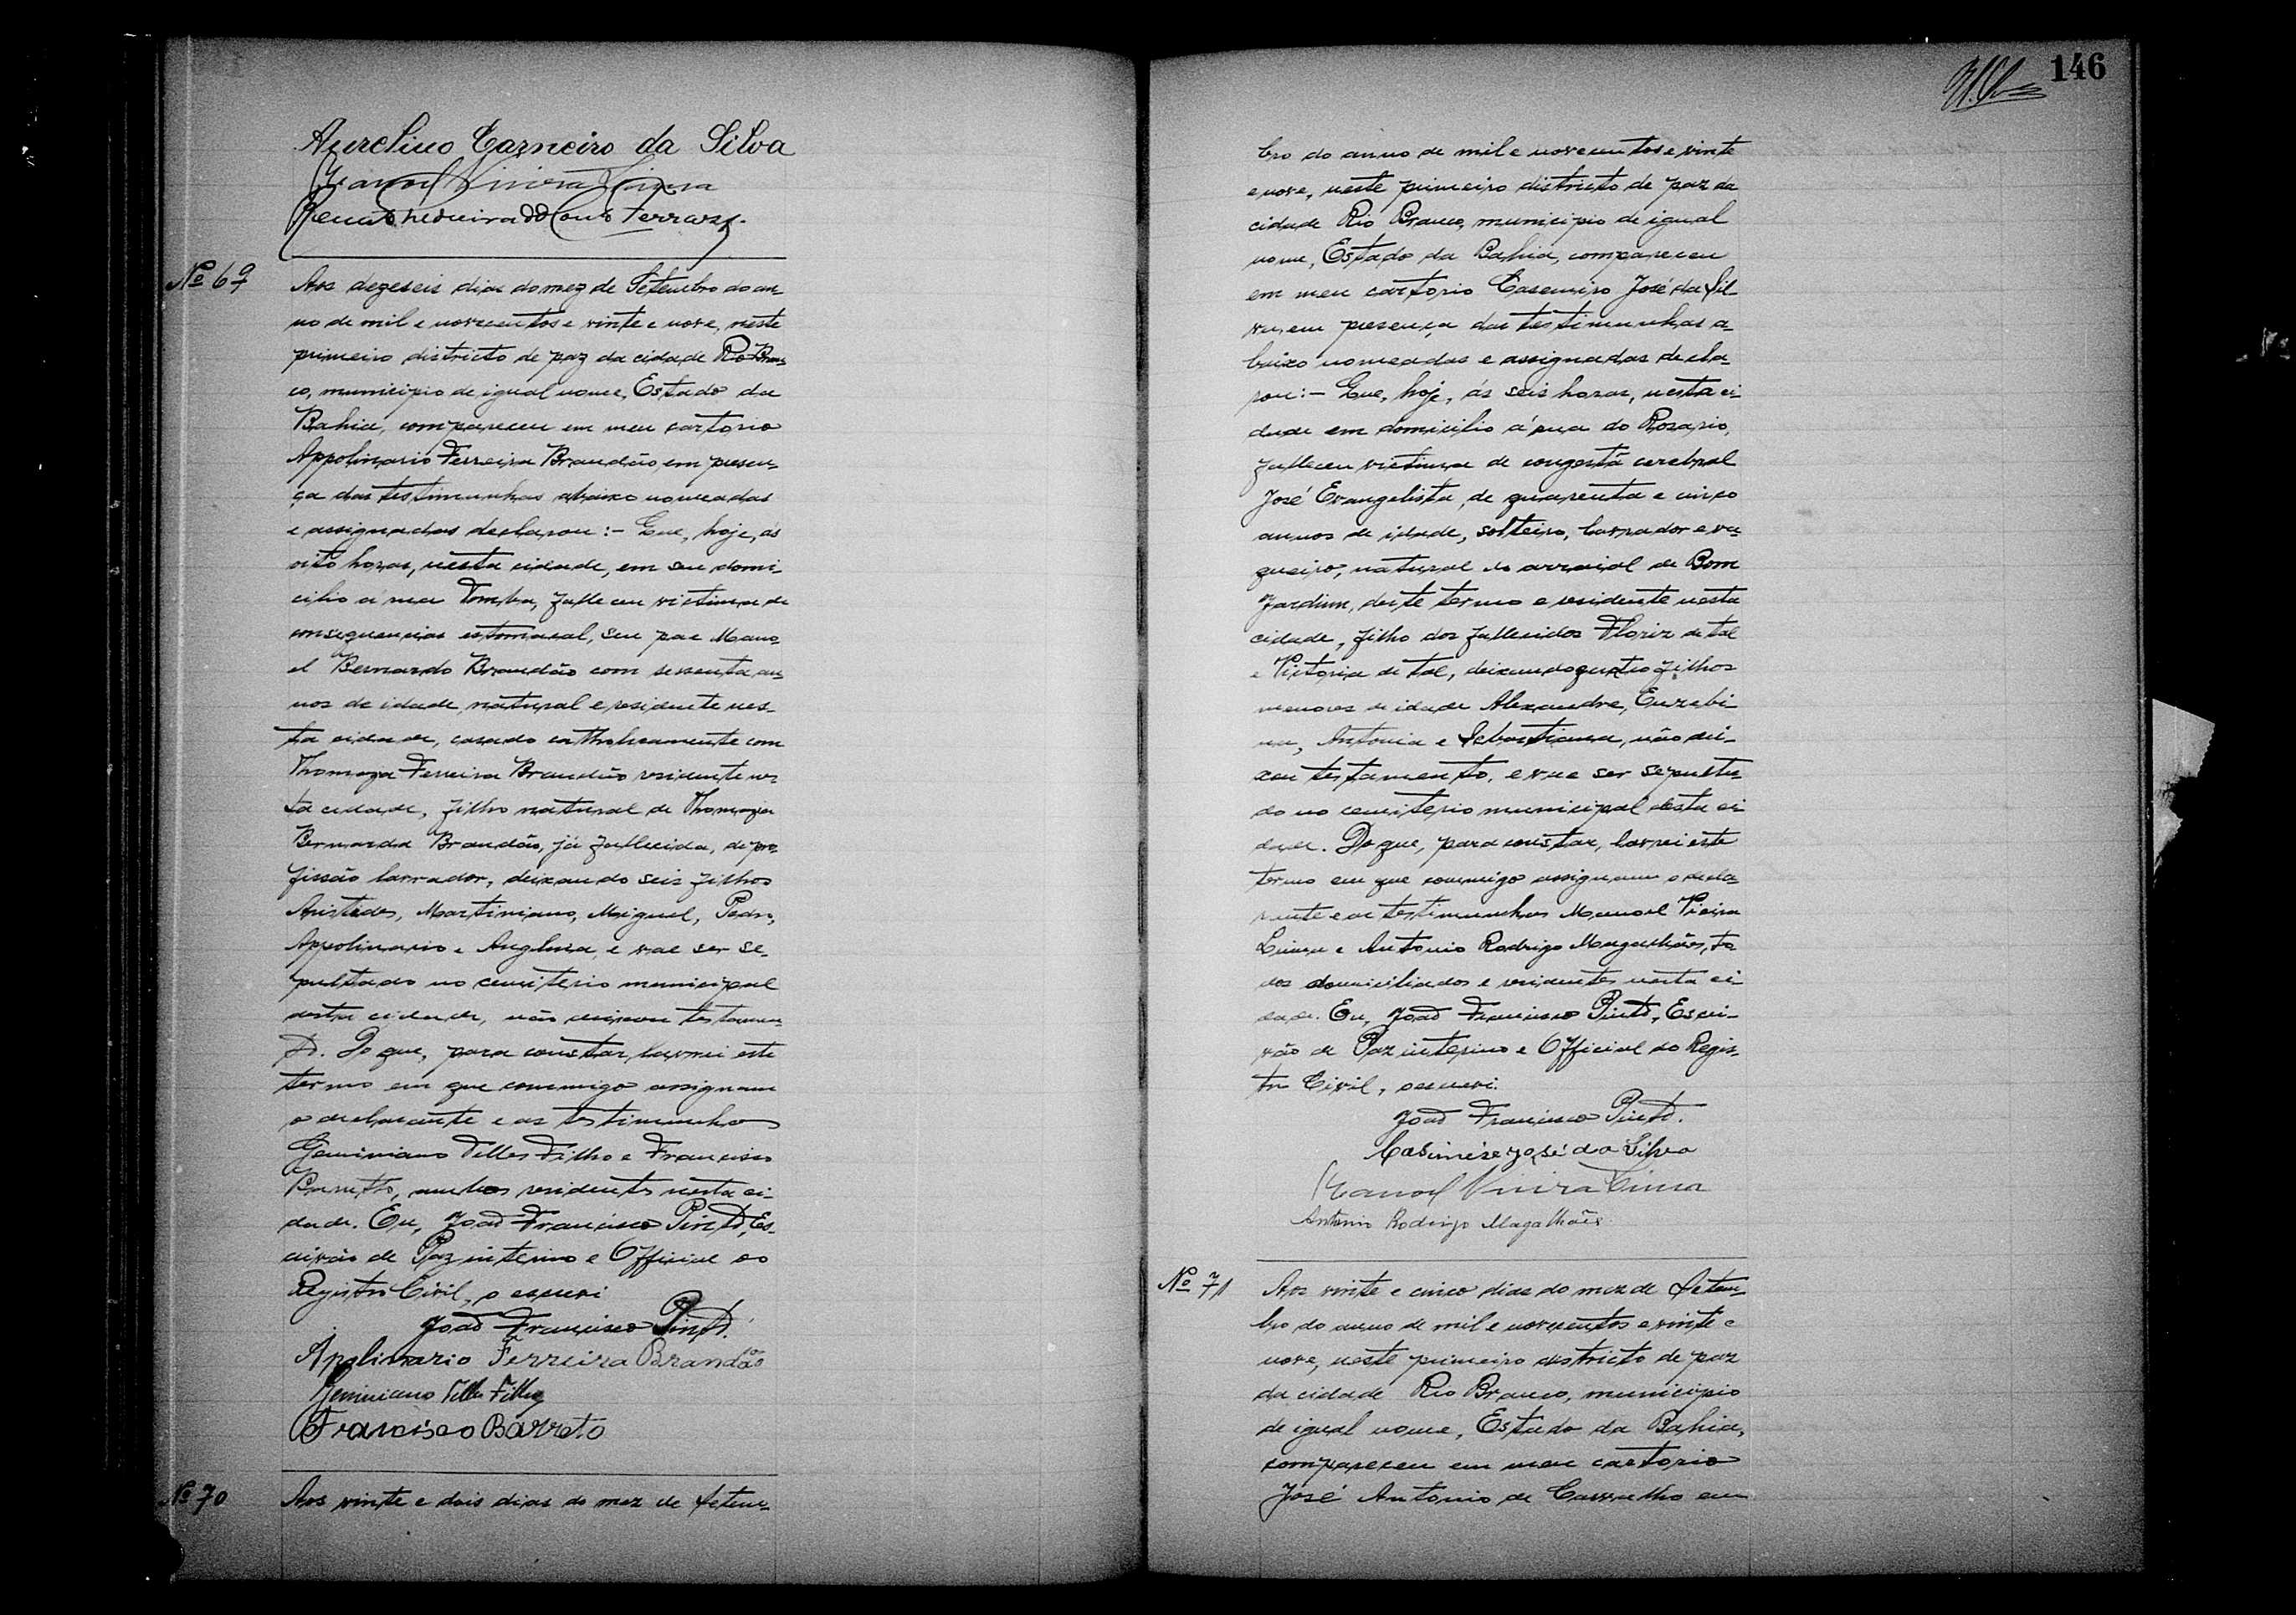 Aurelino Carneiro da Silva
Manoel Vieira Lima
Ferraz
Nº 69
Aos dezeseis dias do mez de Setembro do an-
no de mil e novecentos e vinte e nove, neste
primeiro districto de paz da cidade Rio Bran-
co, municipio de igual nome, Estado da
Bahia, compareceu em meu cartorio
Appolinario Ferreira Brandão, em presen-
ça das testimunhas abaixo nomeadas
e assignadas declarou:- Que, hoje, ás
oito horas, nesta cidade, em seu domi-
cilio á rua Tomba, falleceu victima de
consequencias estomacal, seu pae Mano-
el Bernardo Brandão com sessenta an-
nos de idade, natural e residente nes-
ta cidade, casado catholicamente com
Thomaza Ferreira Brandão residente nes-
ta cidade, filho natural de Thomazia
Bernarda Brandão, já fallecida, de pro-
fissão lavrador, deixando seis filhos
Aristides, Martiniano, Miguel, Pedro,
Appolinario e Anglina, e vae ser se-
pultado no cemiterio municipal
desta cidade, não deixou testamen-
to. Do que, para constar, lavrei este
termo em que commigo assignam
o declarante e as testimunhas
Geminiano Telles Filho e Francisco
Barretto, ambos residentes nesta ci-
dade. Eu, João Francisco Pinto, Es-
crivão de Paz interino e Official do
Registro Civil, o escrevi
João Francisco Pinto.
Apolinario Ferreira Brandão
Geminiano Telles Filho
Francisco Barreto
Nº 70
Aos vinte e dois dias do mez de Setem-
146
bro do anno de mil e novecentos e vinte
e nove, neste primeiro districto de paz da
cidade Rio Branco, municipio de igual
nome, Estado da Bahia, compareceu
em meu cartorio Casemiro José da Sil-
va em presença das testimunhas a-
baixo nomeadas e assignadas decla-
rou:- Que, hoje, ás seis horas, nesta ci-
dade em domicilio á rua do Rosario,
falleceu victima de congestã cerebral
José Evangelista, de quarenta e cinco
annos de idade, solteiro, lavrador e va-
queiro, natural do arraial de Bom
Jardim, deste termo e residente nesta
cidade, filho dos fallecidos Floriz de tal
e Victoria de tal, deixando quatro filhos
menores de idade Alexandre, Euzebi-
na, Antonia e Sebastiana, não dei-
xou testamento, e vae ser sepulta-
do no cemiterio municipal desta ci-
dade. Do que, para constar, lavrei este
termo em que commigo assignam o decla-
rante e as testimunhas Manoel Vieira
Lima e Antonio Rodrigo Magalhães, to-
dos domiciliados e residentes nesta ci-
dade. Eu, João Francisco Pinto, Escri-
vão de Paz interino e Official do Regis-
tro Civil, o escrevi.
João Francisco Pinto.
Casimiro José da Silva
Manoel Vieira Lima
Antonio Rodrigo Magalhães
Nº 71
Aos vinte e cinco dias do mez de Setem-
bro do anno de mil e novecentos e vinte e
nove, neste primeiro districto de paz
da cidade Rio Branco, municipio
de igual nome, Estado da Bahia,
compareceu em meu cartorio
José Antonio de Carvalho em